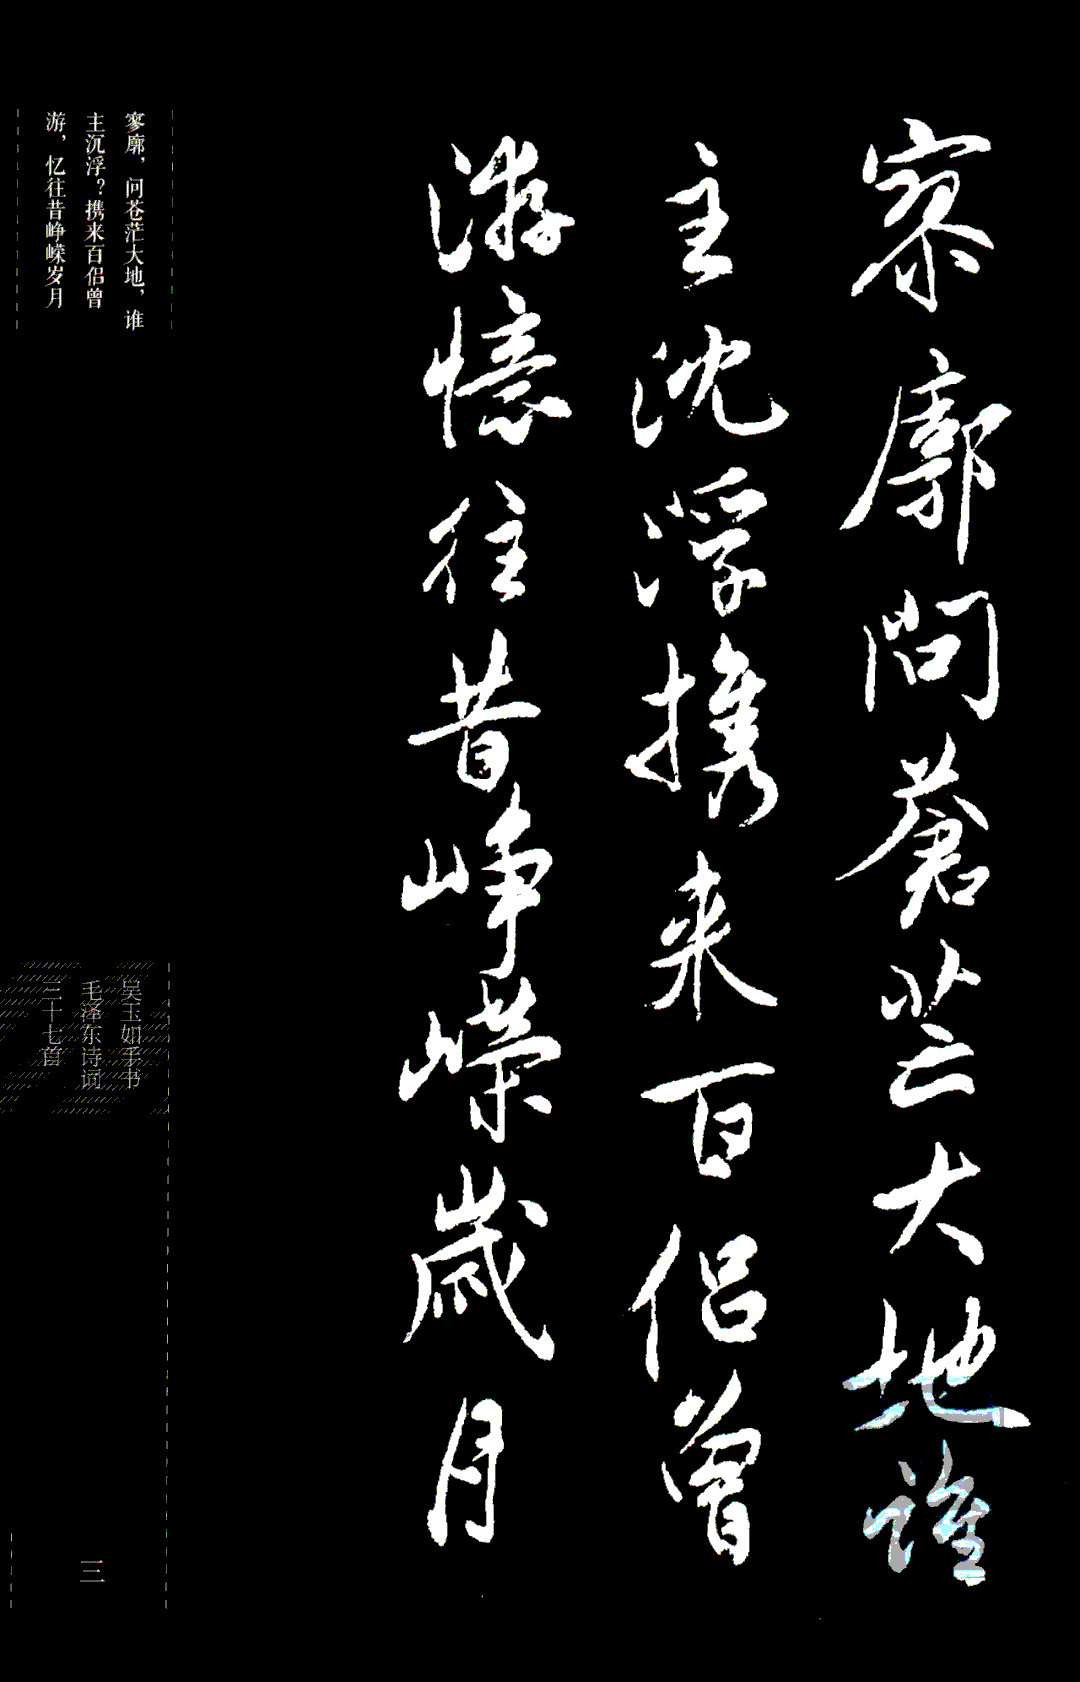 寥廓問蒼茫大地誰
主沈浮携来百侣曾
游憶往昔峥嵘歲月
寥廓，问苍茫大地，谁
主沉浮？携来百侣曾
游，忆往昔峥嵘岁月
吴玉如手书
毛泽东诗词
三十七首
三